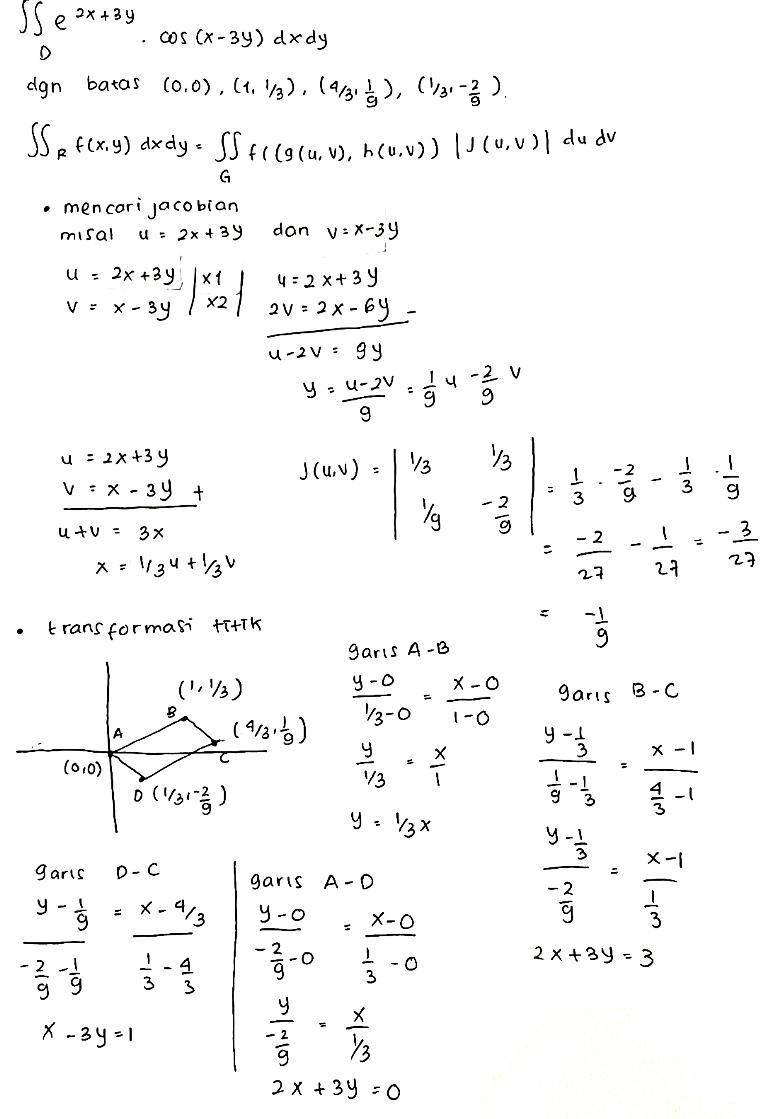 ∬_D e^{2x+3y} · cos (x-3y) dx dy
dgn batas (0,0), (1, 1/3), (4/3, 1/9), (1/3, -2/9).
∬_R f(x,y) dx dy = ∬_G f((g(u,v), h(u,v)) |J(u,v)| du dv
• mencari jacobian
misal u = 2x+3y dan v = x-3y
u = 2x+3y | x1 | u = 2x+3y
v = x-3y | x2 | 2v = 2x-6y -
u-2v = 9y
y = (u-2v)/9 = 1/9 u -2/9 v
u = 2x+3y
v = x-3y +
u+v = 3x
x = 1/3 u + 1/3 v
J(u,v) = | 1/3 1/3 |
| 1/9 -2/9 |
= 1/3 · -2/9 - 1/3 · 1/9
= -2/27 - 1/27 = -3/27
= -1/9
• transformasi titik
A
(0,0)
B
(1, 1/3)
C
(4/3, 1/9)
D (1/3, -2/9)
garis A-B
(y-0)/(1/3-0) = (x-0)/(1-0)
y/(1/3) = x/1
y = 1/3 x
garis B-C
(y-1/3)/(1/9-1/3) = (x-1)/(4/3-1)
(y-1/3)/(-2/9) = (x-1)/(1/3)
2x+3y = 3
garis D-C
(y-1/9)/(-2/9-1/9) = (x-4/3)/(1/3-4/3)
x-3y = 1
garis A-D
(y-0)/(-2/9-0) = (x-0)/(1/3-0)
y/(-2/9) = x/(1/3)
2x+3y = 0